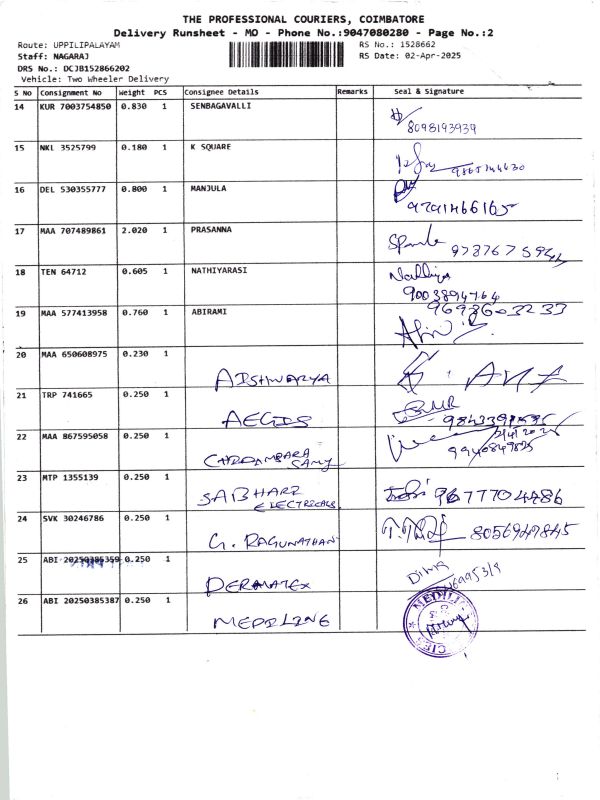 THE PROFESSIONAL COURIERS, COIMBATORE
Delivery Runsheet - MO - Phone No.:9047080280 - Page No.:2
Route: UPPILIPALAYAM RS No.: 1528662
Staff: NAGARAJ RS Date: 02-Apr-2025
DRS No.: DCJB152866202
Vehicle: Two Wheeler Delivery
S No Consignment No Weight PCS Consignee Details Remarks Seal & Signature
14 KUR 7003754850 0.830 1 SENBAGAVALLI
8098193939
15 NKL 3525799 0.180 1 K SQUARE
16 DEL 530355777 0.800 1 MANJULA
9791466165
17 MAA 707489861 2.020 1 PRASANNA
18 TEN 64712 0.605 1 NATHIYARASI
Nathiya
9003894764
19 MAA 577413958 0.760 1 ABIRAMI
20 MAA 650608975 0.230 1
AISHWARYA
21 TRP 741665 0.250 1
AEGIS
22 MAA 867595058 0.250 1
CHIDAMBARA
SAMY
23 MTP 1355139 0.250 1
SABHARI
ELECTRICALS
9677704486
24 SVK 30246786 0.250 1
G. RAGUNATHAN
8056947845
25 ABI 20250385359 0.250 1
DERMATEX
26 ABI 20250385387 0.250 1
MEDILINE